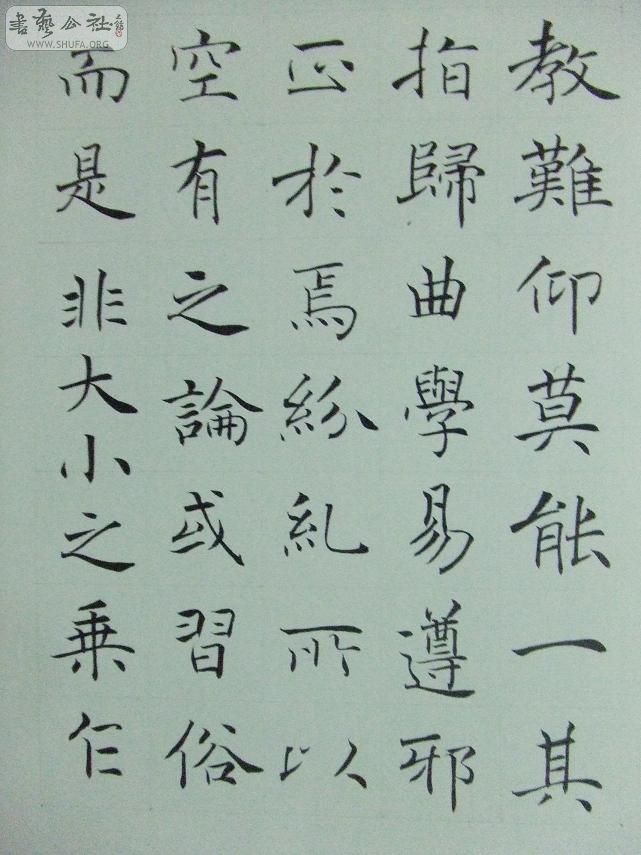 教難仰莫能一其
指歸曲學易遵邪
正於焉紛糺所以
空有之論或習俗
而是非大小之乗乍
書藝公社
WWW.SHUFA.ORG